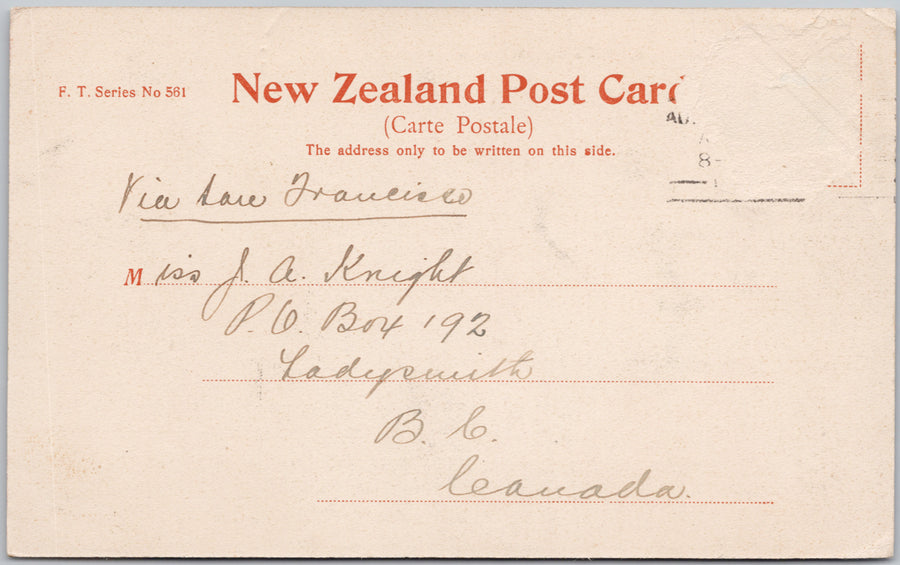 F. T. Series No 561
New Zealand Post Car
(Carte Postale)
The address only to be written on this side.
AU
8-
Via San Francisco
Miss J. A. Knight
P. O. Box 192
Ladysmith
B. C.
Canada.